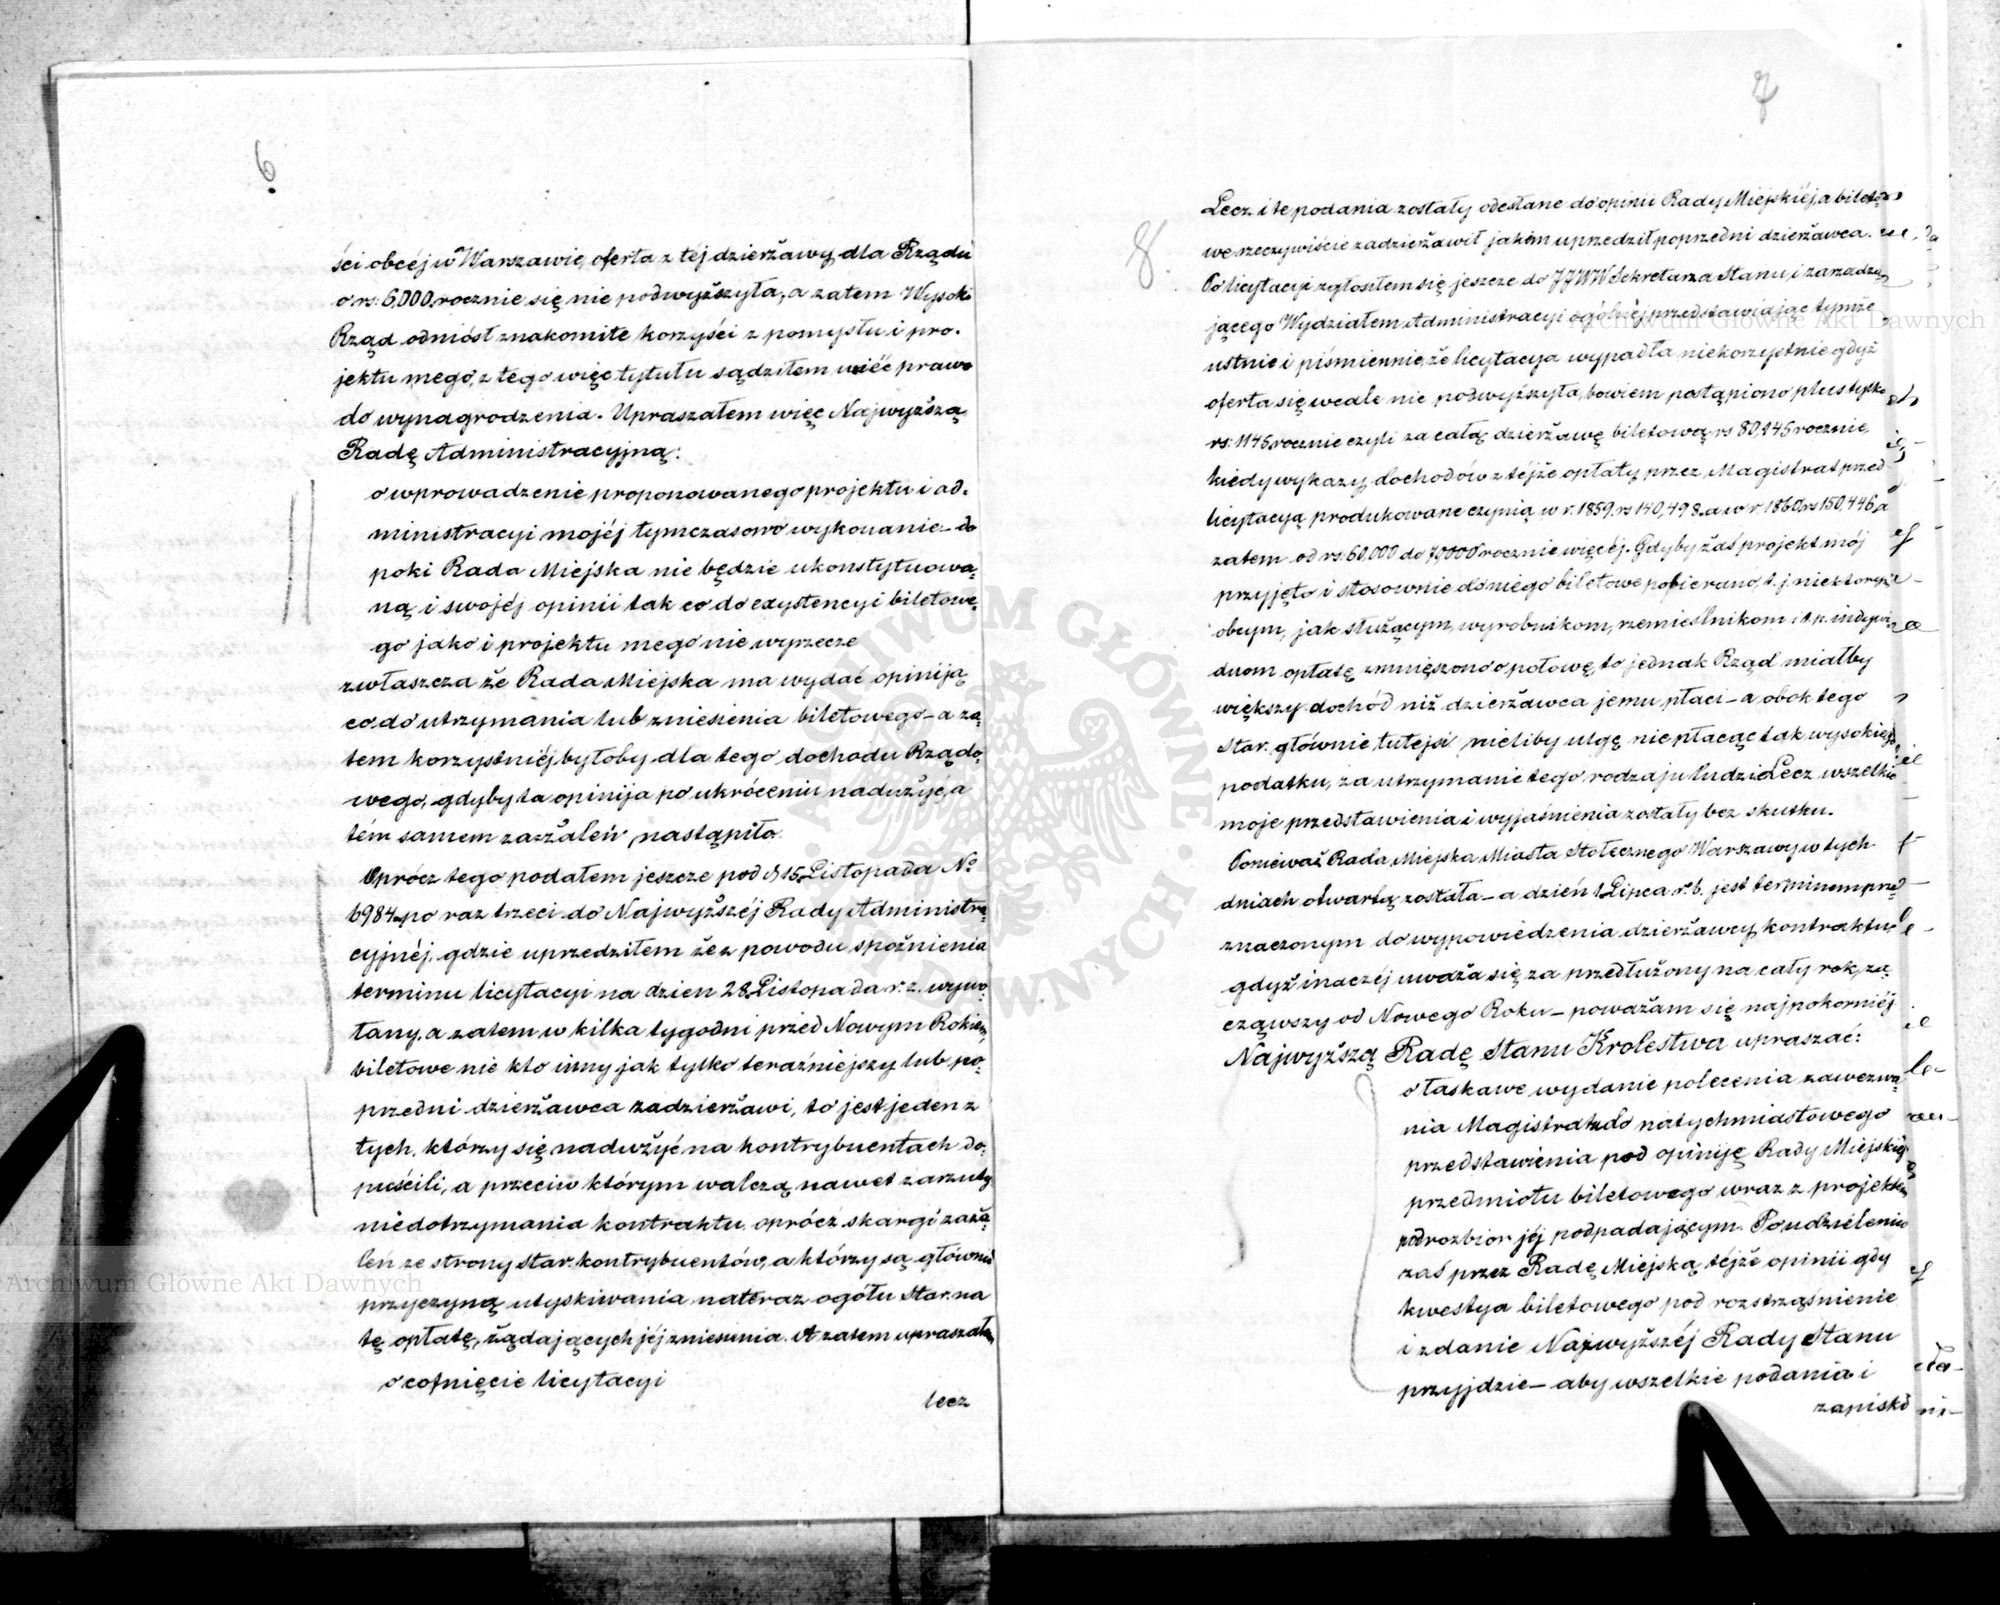 6
ści obcéj w Warszawie, oferta z téj dzierżawy dla Rządu
o rs: 6,000 rocznie się nie podwyższyła, a zatem Wysoki
Rząd odniósł znakomite korzyści z pomysłu i pro-
jektu mego, z tego więc tytułu sądziłem mieć prawo
do wynagrodzenia. Upraszałem więc Najwyższą
Radę Administracyjną:
o wprowadzenie proponowanego projektu i ad-
ministracyi mojéj tymczasowo wykonanie do
poki Rada Miejska nie będzie ukonstytuowa-
ną i swojéj opinii tak co do exystencyi biletowe-
go jako i projektu mego nie wyrzecze
zwłaszcza że Rada Miejska ma wydać opiniją
co do utrzymania lub zniesienia biletowego – a za-
tem korzystniéj byłoby dla tego dochodu Rządo-
wego, gdyby ta opinija po ukróceniu nadużyć, a
tém samem zażaleń, nastąpiło
Oprócz tego podałem jeszcze pod d. 15 Listopada No
6984 po raz trzeci do Najwyższéj Rady Administra-
cyjnéj, gdzie uprzedziłem że z powodu spoźnienia
terminu licytacyi na dzien 28 Listopada r. z. wywo-
łany, a zatem w kilka tygodni przed Nowym Rokiem,
biletowe nie kto inny jak tylko teraźniejszy lub po-
przedni dzierżawca zadzierżawi, to jest jeden z
tych, którzy się nadużyć na kontrybuentach do-
puścili, a przeciw którym walczą nawet zarzuty
niedotrzymania kontraktu, oprócz skargi zaża-
leń ze strony Star. kontrybuentów, a którzy są głównie
przyczyną utyskiwania nateraz ogółu Star. na
tę opłatę, żądających jéj zniesienia. A zatem upraszałem
o cofnięcie licytacyi
lecz
7
8.
Lecz i te podania zostały odesłane do opinii Rady Miejskiéj, a bileto-
we rzeczywiście zadzierżawił jakem uprzedził poprzedni dzierżawca.
Po licytacyi zgłosiłem się jeszcze do JJWW Sekretarza Stanu i zarządza-
jącego Wydziałem Administracyi ogólnéj przedstawiając tymże
ustnie i piśmiennie, że licytacya wypadła niekorzystnie gdyż
oferta się wcale nie podwyższyła, bowiem postąpiono plus tylko
rs: 1145 rocznie czyli za całą dzierżawę biletową rs 80,145 rocznie,
kiedy wykazy dochodów z téjże opłaty przez Magistrat przed
licytacyą produkowane czynią w r. 1859. rs 140,498. a w r. 1860. rs 150,446, a
zatem od rs: 60,000 do 70,000 rocznie więcéj. Gdyby zaś projekt mój
przyjęto i stosownie do niego biletowe pobierano, t. j. niektorym
obcym, jak służącym, wyrobnikom, rzemieślnikom i t. p. indywi-
duom opłatę zmniejszono o połowę, to jednak Rząd miałby
większy dochód niż dzierżawca jemu płaci – a obok tego
Star. głównie tutejsi mieliby ulgę nie płacąc tak wysokiego
podatku, za utrzymanie tego rodzaju ludzi. Lecz wszelkie
moje przedstawienia i wyjaśnienia zostały bez skutku.
Ponieważ Rada Miejska Miasta Stołecznego Warszawy w tych
dniach otwartą została – a dzień 1 Lipca r. b. jest terminem prze-
znaczonym do wypowiedzenia dzierżawcy kontraktu
gdyż inaczéj uważa się za przedłużony na cały rok, za-
cząwszy od Nowego Roku – poważam się najpokorniéj
Najwyższą Radę Stanu Krolestwa upraszać:
o łaskawe wydanie polecenia zawezwa-
nia Magistratu do natychmiastowego
przedstawienia pod opiniję Rady Miejskiéj
przedmiotu biletowego wraz z projektem
pod rozbior jéj podpadającym. Po udzieleniu
zaś przez Radę Miejską téjże opinii gdy
kwestya biletowego pod rozstrząśnienie
i zdanie Najwyższéj Rady Stanu
przyjdzie – aby wszelkie podania i
zapiski
Archiwum Główne Akt Dawnych
Archiwum Główne Akt Dawnych
ARCHIWUM GŁÓWNE AKT DAWNYCH